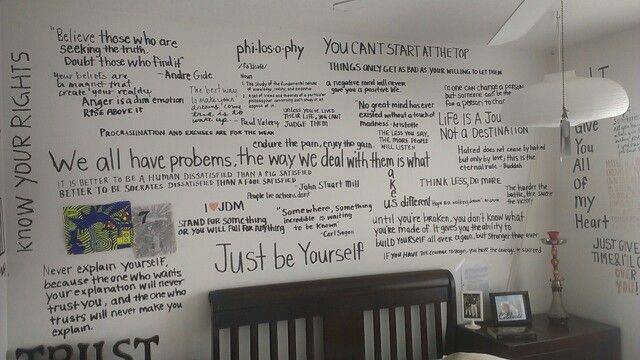 KNOW YOUR RIGHTS
"Believe those who are
seeking the truth.
Doubt those who find it"
- Andre Gide
Your beliefs are
a magnet that
create your reality.
Anger is a dim emotion
RISE ABOVE IT
The best way
to make your
dreams come
true is to
wake up.
- Paul Valery
phi·los·o·phy
Noun
1. The study of the fundamental nature
of knowledge, reality, and existence
UNLESS YOU'VE LIVED
THEIR LIFE, YOU CAN'T
JUDGE THEM
YOU CAN'T START AT THE TOP
THINGS ONLY GET AS BAD AS YOUR WILLING TO LET THEM
a negative mind will never
give you a positive life.
"No great mind has ever
existed without a touch of
madness - Aristotle
no one can change a person
but someone can be the
for a person to change
LIFE IS A JOU
NOT A DESTINATION
PROCRASINATION AND EXCUSES ARE FOR THE WEAK
endure the pain, enjoy the gain.
THE LESS YOU SAY,
THE MORE PEOPLE
WILL LISTEN
Hatred does not cease by hatred
but only by love; this is the
eternal rule - Buddah
We all have probems, the way we deal with them is what
a
k
e
us different
IT IS BETTER TO BE A HUMAN DISSATISFIED THAN A PIG SATISFIED
BETTER TO BE SOCRATES DISSATISFIED THAN A FOOL SATISFIED
John Stuart Mill
People lie actions don't
THINK LESS, DO MORE
The harder the
battle, the sweeter
the victory
7
I ♥ JDM
STAND FOR something
OR YOU WILL FALL FOR ANYTHING
"Somewhere, Something
incredible is waiting
to be known"
- Carl Sagan
until you're broken, you don't know what
you're made of. It gives you the ability to
build yourself all over again, but stronger than ever
IF YOU HAVE THE COURAGE TO begin, you have the courage to succeed
Just be Yourself
Never explain yourself,
because the one who wants
your explanation will never
trust you, and the one who
trusts will never make you
explain.
TRUST
Give
You
All
of
my
Heart
JUST GIVE
TIME
YOU